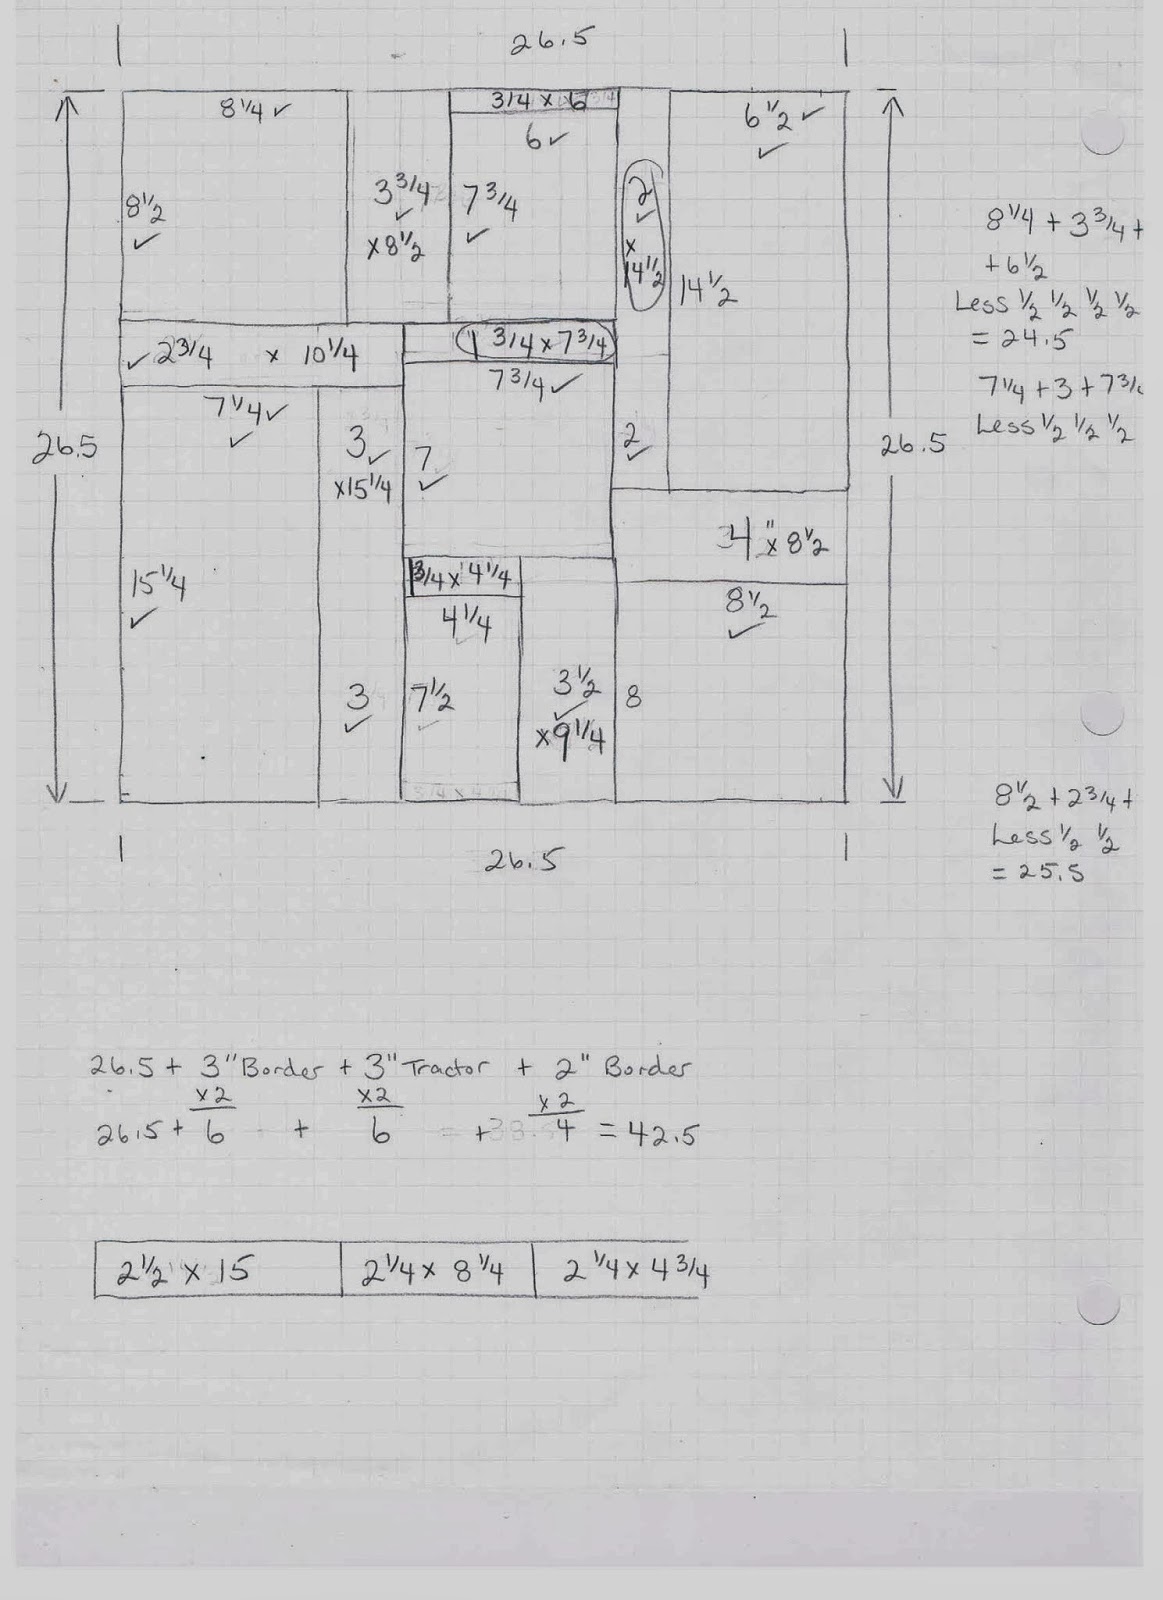 26.5
8 1/4 ✓
3/4 x 6
6 ✓
6 1/2 ✓
✓
8 1/2
✓
3 3/4
✓
x 8 1/2
7 3/4
✓
2
✓
x
14 1/2
14 1/2
8 1/4 + 3 3/4 +
+ 6 1/2
Less 1/2 1/2 1/2 1/2
= 24.5
7 1/4 + 3 + 7 3/4
Less 1/2 1/2 1/2
✓ 2 3/4 x 10 1/4
3/4 x 7 3/4
7 3/4 ✓
7 1/4 ✓
✓
3 ✓
x 15 1/4
7
✓
2
✓
26.5
26.5
4" x 8 1/2
15 1/4
✓
3/4 x 4 1/4
4 1/4
8 1/2
✓
3
✓
7 1/2
✓
3 1/2
✓
x 9 1/4
8
8 1/2 + 2 3/4 +
Less 1/2 1/2
= 25.5
26.5
26.5 + 3" Border + 3" Tractor + 2" Border
x2 x2 x2
26.5 + 6 + 6 + 4 = 42.5
2 1/2 x 15
2 1/4 x 8 1/4
2 1/4 x 4 3/4